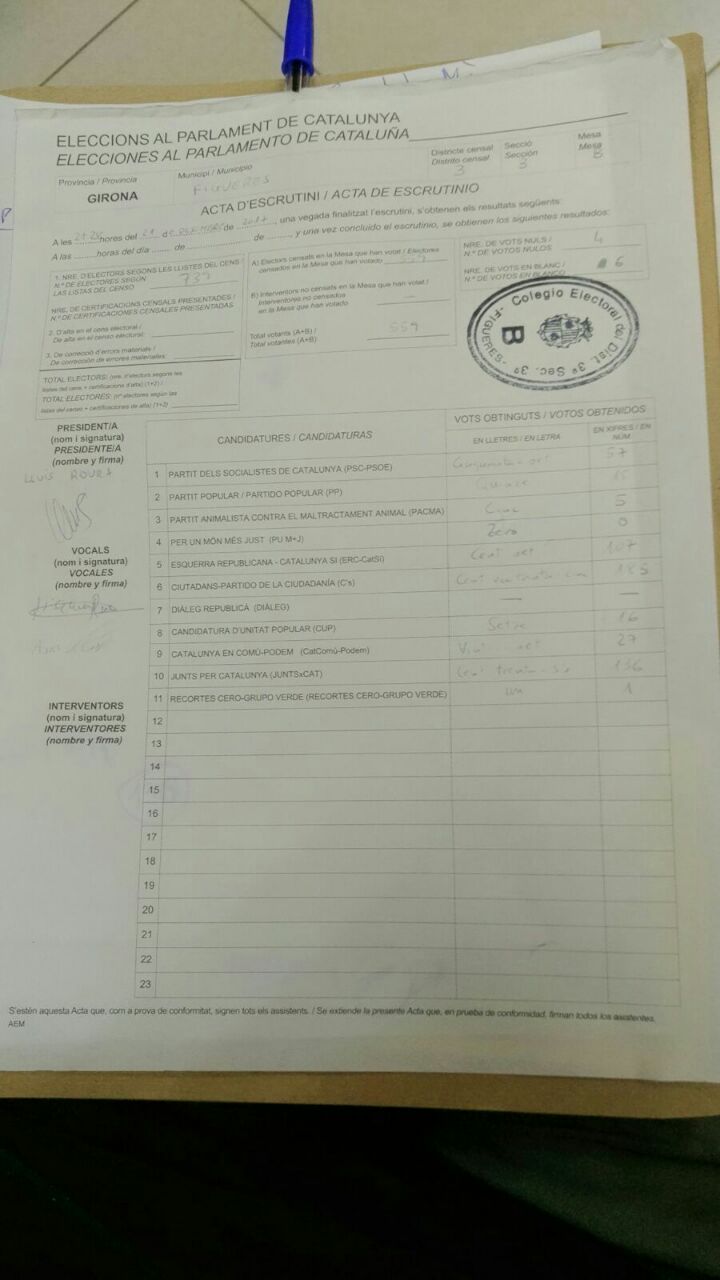 ELECCIONS AL PARLAMENT DE CATALUNYA
ELECCIONES AL PARLAMENTO DE CATALUÑA
Província / Provincia
Municipi / Municipio
Districte censal Secció Mesa
Distrito censal Sección Mesa
GIRONA FIGUERES 3 3 B
ACTA D'ESCRUTINI / ACTA DE ESCRUTINIO
A les hores del 21 de de 2017, una vegada finalitzat l'escrutini, s'obtenen els resultats següents:
A las horas del día de de y una vez concluido el escrutinio, se obtienen los siguientes resultados:
1. NRE. D'ELECTORS SEGONS LES LLISTES DEL CENS /
N.º DE ELECTORES SEGÚN
LAS LISTAS DEL CENSO
NRE. DE CERTIFICACIONS CENSALS PRESENTADES /
N.º DE CERTIFICACIONES CENSALES PRESENTADAS
2. D'alta en el cens electoral /
De alta en el censo electoral:
3. De correcció d'errors materials /
De corrección de errores materiales:
TOTAL ELECTORS: (nre. d'electors segons les
llistes del cens + certificacions d'alta) (1+2) /
TOTAL ELECTORES: (nº electores según las
listas del censo + certificaciones de alta) (1+2)
A) Electors censats en la Mesa que han votat / Electores
censados en la Mesa que han votado
B) Interventors no censats en la Mesa que han votat /
Interventores no censados
en la Mesa que han votado —
Total votants (A+B) /
Total votantes (A+B): 559
NRE. DE VOTS NULS /
N.º DE VOTOS NULOS 4
NRE. DE VOTS EN BLANC /
N.º DE VOTOS EN BLANCO 6
Colegio Electoral del Dist. 3º Sec. 3ª
-FIGUERES-
B
PRESIDENT/A
(nom i signatura)
PRESIDENTE/A
(nombre y firma)
LLUIS ROURA
VOCALS
(nom i signatura)
VOCALES
(nombre y firma)
INTERVENTORS
(nom i signatura)
INTERVENTORES
(nombre y firma)
CANDIDATURES / CANDIDATURAS
VOTS OBTINGUTS / VOTOS OBTENIDOS
EN LLETRES / EN LETRA
EN XIFRES / EN NÚM.
1 PARTIT DELS SOCIALISTES DE CATALUNYA (PSC-PSOE) Cinquanta-set 57
2 PARTIT POPULAR / PARTIDO POPULAR (PP) Quinze 15
3 PARTIT ANIMALISTA CONTRA EL MALTRACTAMENT ANIMAL (PACMA) Cinc 5
4 PER UN MÓN MÉS JUST (PU M+J) Zero 0
5 ESQUERRA REPUBLICANA - CATALUNYA SÍ (ERC-CatSí) Cent set 107
6 CIUTADANS-PARTIDO DE LA CIUDADANÍA (C's)
7 DIÀLEG REPUBLICÀ (DIÀLEG) — —
8 CANDIDATURA D'UNITAT POPULAR (CUP) Setze 16
9 CATALUNYA EN COMÚ-PODEM (CatComú-Podem) Vint-i-set 27
10 JUNTS PER CATALUNYA (JUNTSxCAT) Cent trenta-sis 136
11 RECORTES CERO-GRUPO VERDE (RECORTES CERO-GRUPO VERDE) un 1
12
13
14
15
16
17
18
19
20
21
22
23
S'estén aquesta Acta que, com a prova de conformitat, signen tots els assistents. / Se extiende la presente Acta que, en prueba de conformidad, firman todos los asistentes.
AEM